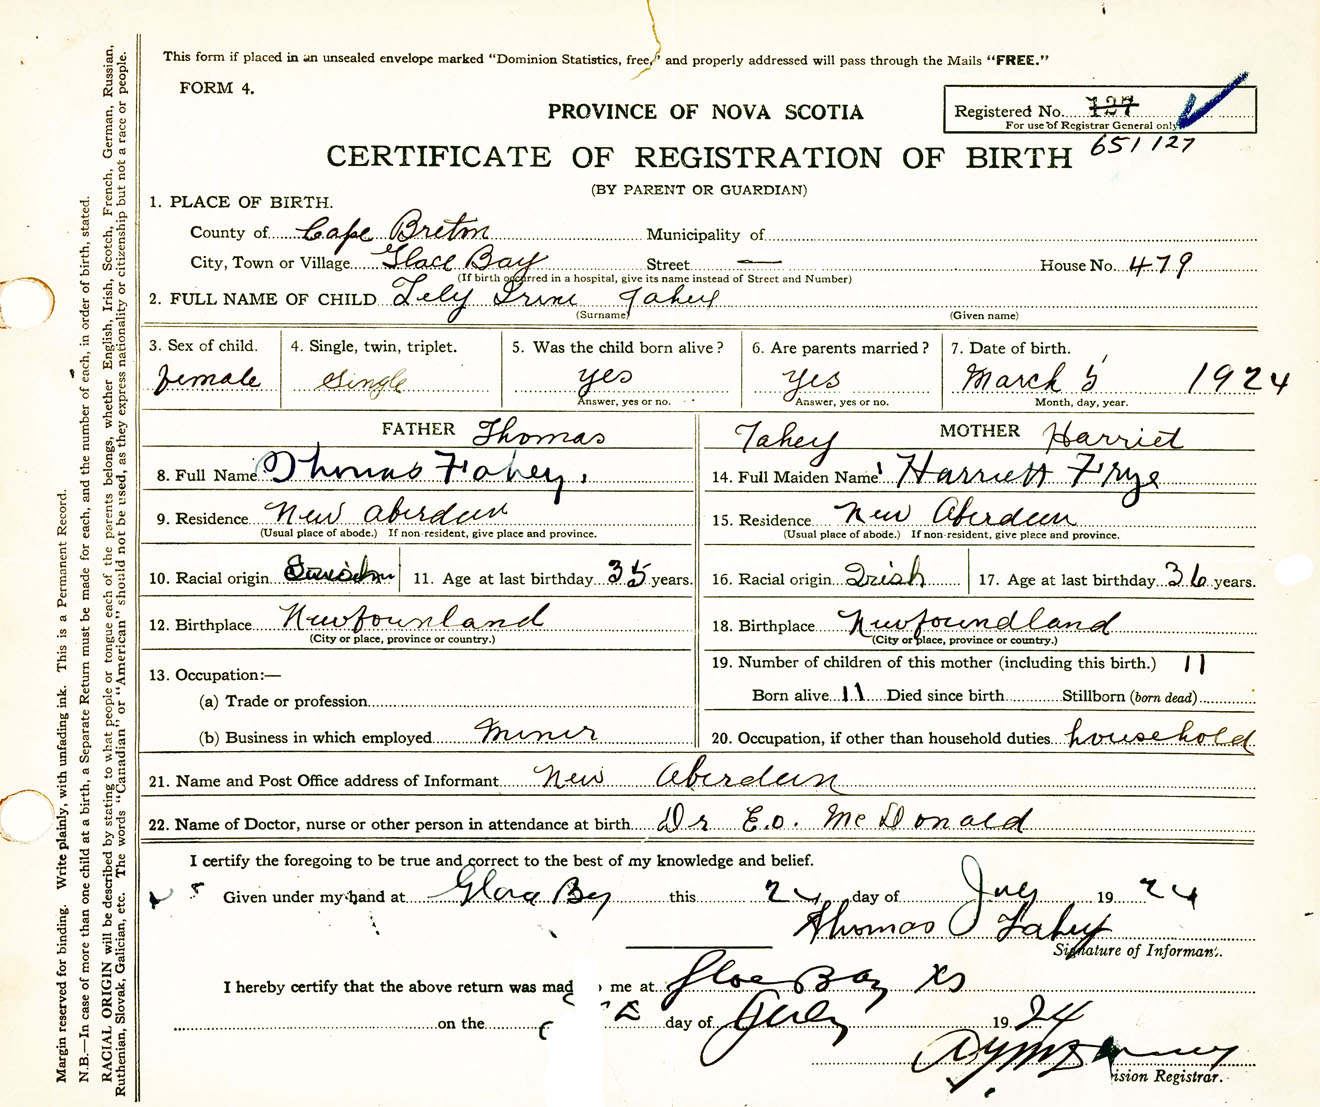 This form if placed in an unsealed envelope marked "Dominion Statistics, free," and properly addressed will pass through the Mails "FREE."
FORM 4.
PROVINCE OF NOVA SCOTIA
Registered No. 127
For use of Registrar General only
651127
CERTIFICATE OF REGISTRATION OF BIRTH
(BY PARENT OR GUARDIAN)
1. PLACE OF BIRTH.
County of Cape Breton Municipality of
City, Town or Village Glace Bay Street — House No. 479
(If birth occurred in a hospital, give its name instead of Street and Number)
2. FULL NAME OF CHILD Lely Irine Fahey
(Surname) (Given name)
3. Sex of child. 4. Single, twin, triplet. 5. Was the child born alive? 6. Are parents married? 7. Date of birth.
female single yes yes March 5 1924
Answer, yes or no. Answer, yes or no. Month, day, year.
FATHER Thomas Fahey MOTHER Harriet
8. Full Name Thomas Fahey, 14. Full Maiden Name Harriett Frye
9. Residence New Aberdeen 15. Residence New Aberdeen
(Usual place of abode.) If non-resident, give place and province. (Usual place of abode.) If non-resident, give place and province.
10. Racial origin 11. Age at last birthday 35 years. 16. Racial origin Irish 17. Age at last birthday 36 years.
12. Birthplace Newfounland 18. Birthplace Newfoundland
(City or place, province or country.) (City or place, province or country.)
13. Occupation:— 19. Number of children of this mother (including this birth.) 11
(a) Trade or profession Born alive 11 Died since birth Stillborn (born dead)
(b) Business in which employed Miner 20. Occupation, if other than household duties household
21. Name and Post Office address of Informant New Aberdeen
22. Name of Doctor, nurse or other person in attendance at birth Dr E.O. McDonald
I certify the foregoing to be true and correct to the best of my knowledge and belief.
Given under my hand at Glace Bay this 24 day of July 1924
Thomas Fahey
Signature of Informant.
I hereby certify that the above return was mad me at Glace Bay NS
on the day of July 1924
ision Registrar.
Margin reserved for binding. Write plainly, with unfading ink. This is a Permanent Record.
N.B.—In case of more than one child at a birth, a Separate Return must be made for each, and the number of each, in order of birth, stated.
RACIAL ORIGIN will be described by stating to what people or tongue each of the parents belongs, whether English, Irish, Scotch, French, German, Russian,
Ruthenian, Slovak, Galician, etc. The words "Canadian" or "American" should not be used, as they express nationality or citizenship but not a race or people.